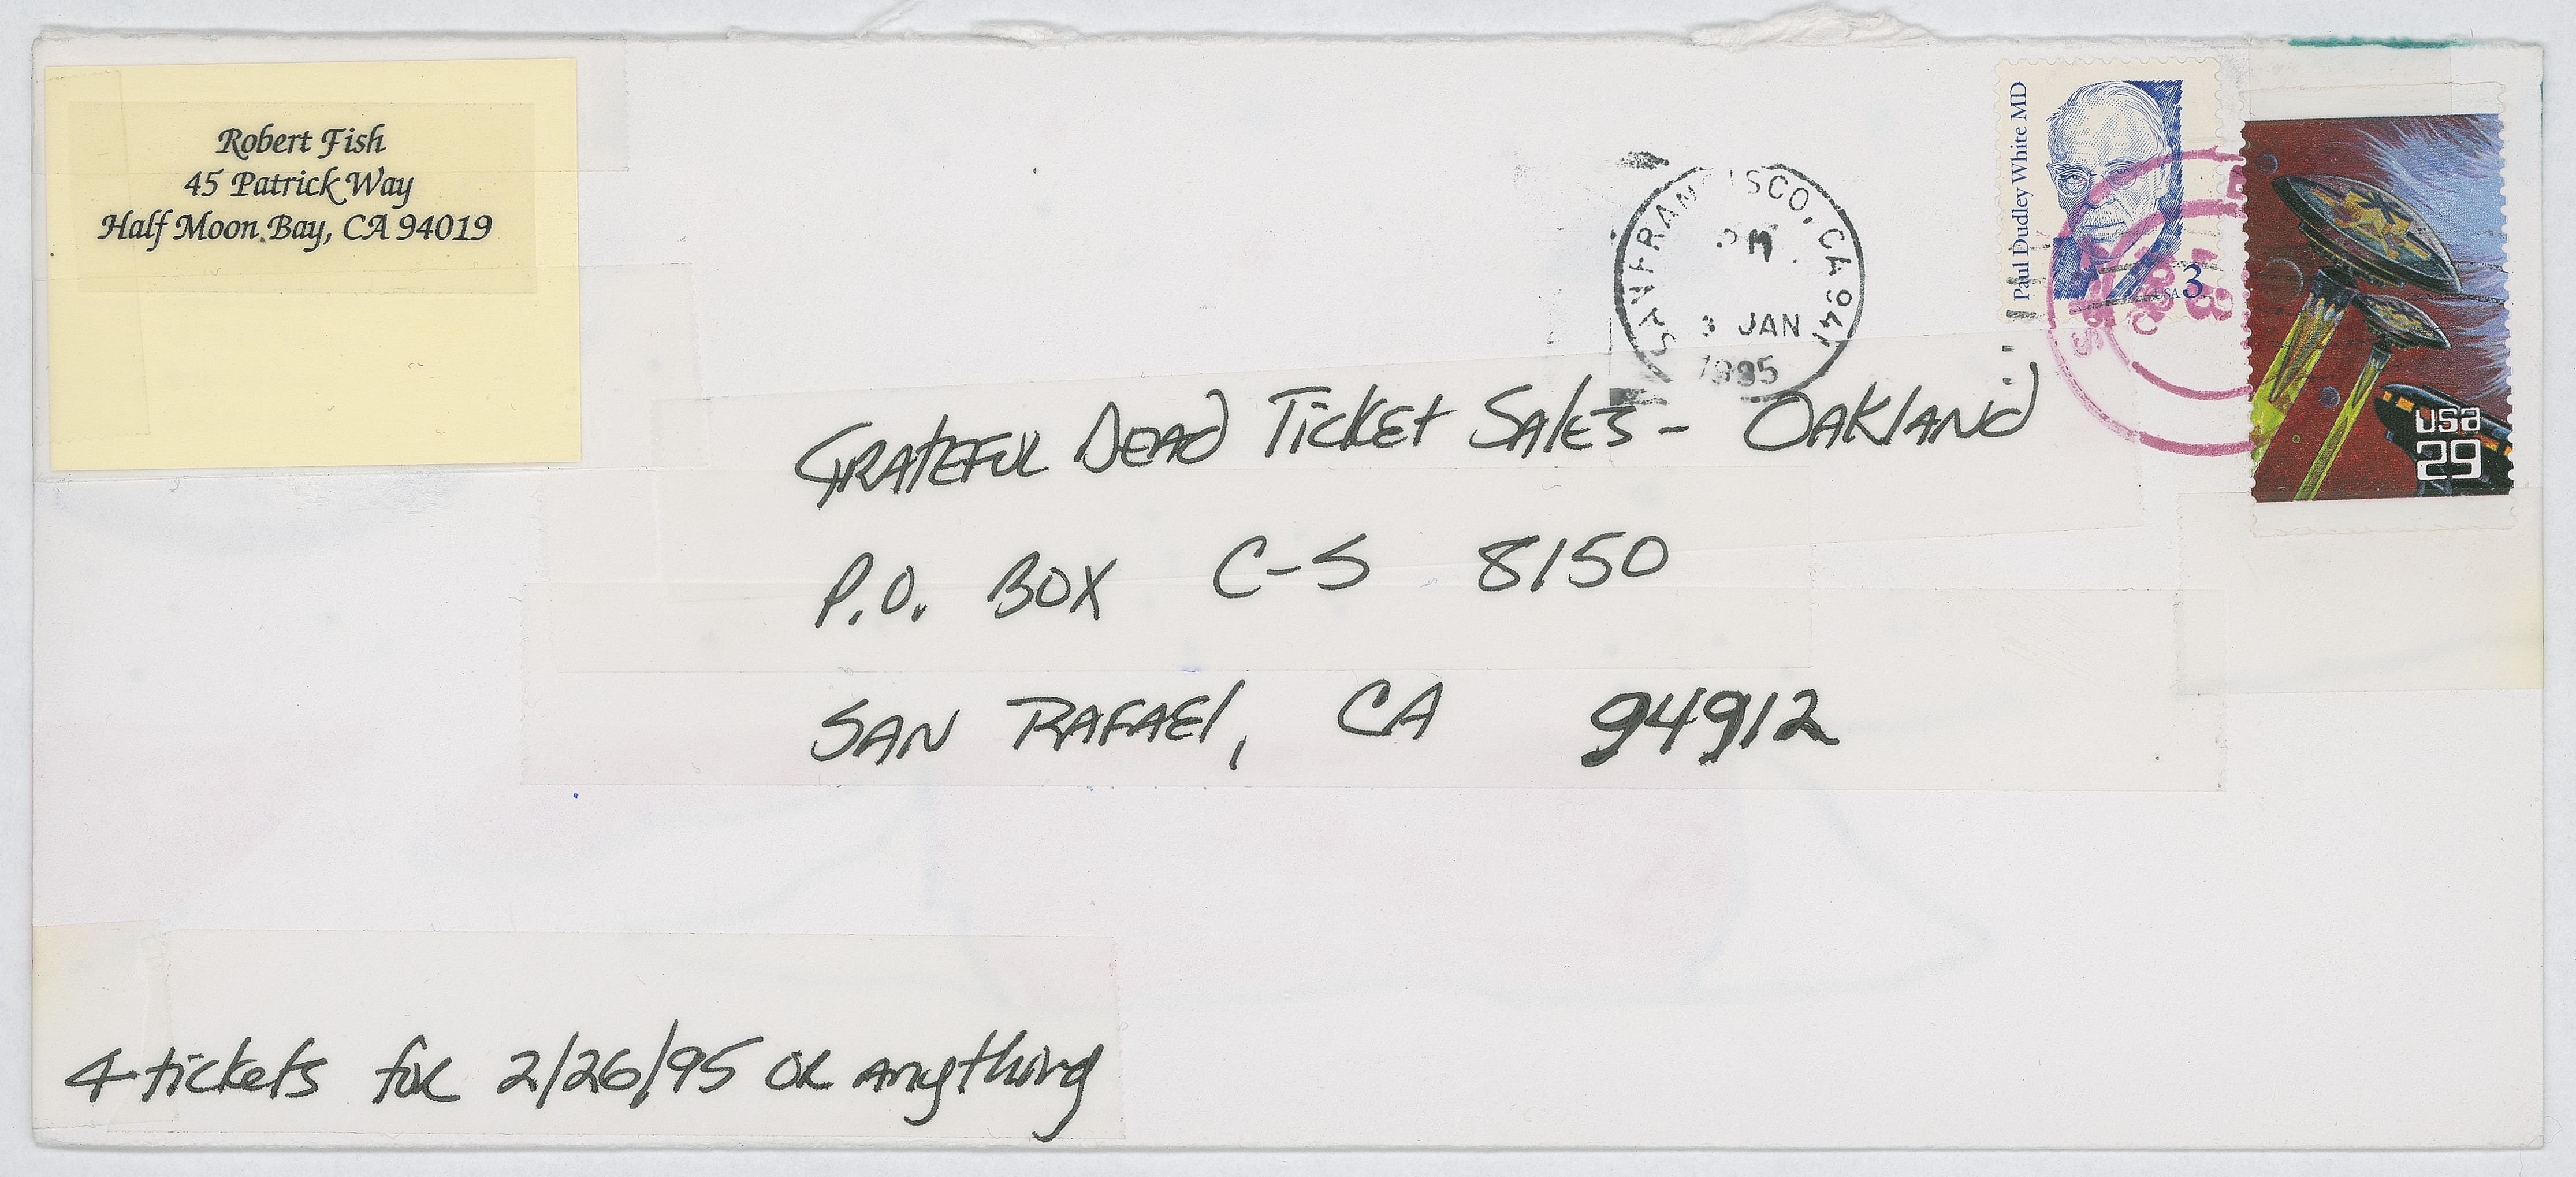 Robert Fish
45 Patrick Way
Half Moon Bay, CA 94019
SAN FRANCISCO, CA 941
PM
3 JAN
1995
Paul Dudley White MD
USA 3
USA
29
GRATEFUL DEAD TICKET SALES - OAKLAND
P.O. BOX C-S 8150
SAN RAFAEL, CA 94912
4 tickets for 2/26/95 OR anything